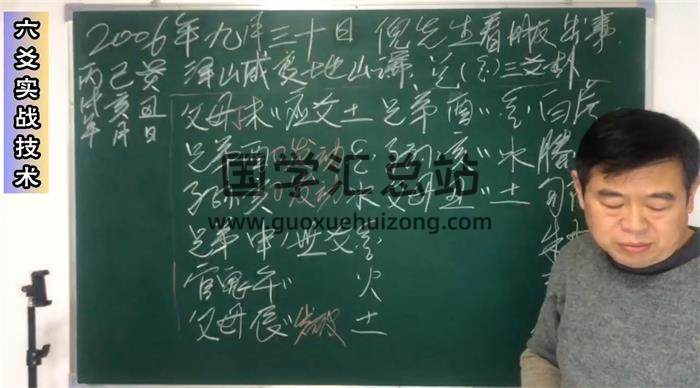 六爻实战技术
2006年九月三十日 倪先生看朋友出事
丙 己 癸 泽山咸变地山谦
戌 亥 丑 父母未〃应爻土 兄弟酉〃金 白虎
年 月 日 兄弟酉 发动 子孙亥〃水 腾
子孙亥 发动 水 父母丑〃土
兄弟申 世爻金
官鬼午〃 火
父母辰〃 土
国学汇总站
www.guoxuehuizong.com